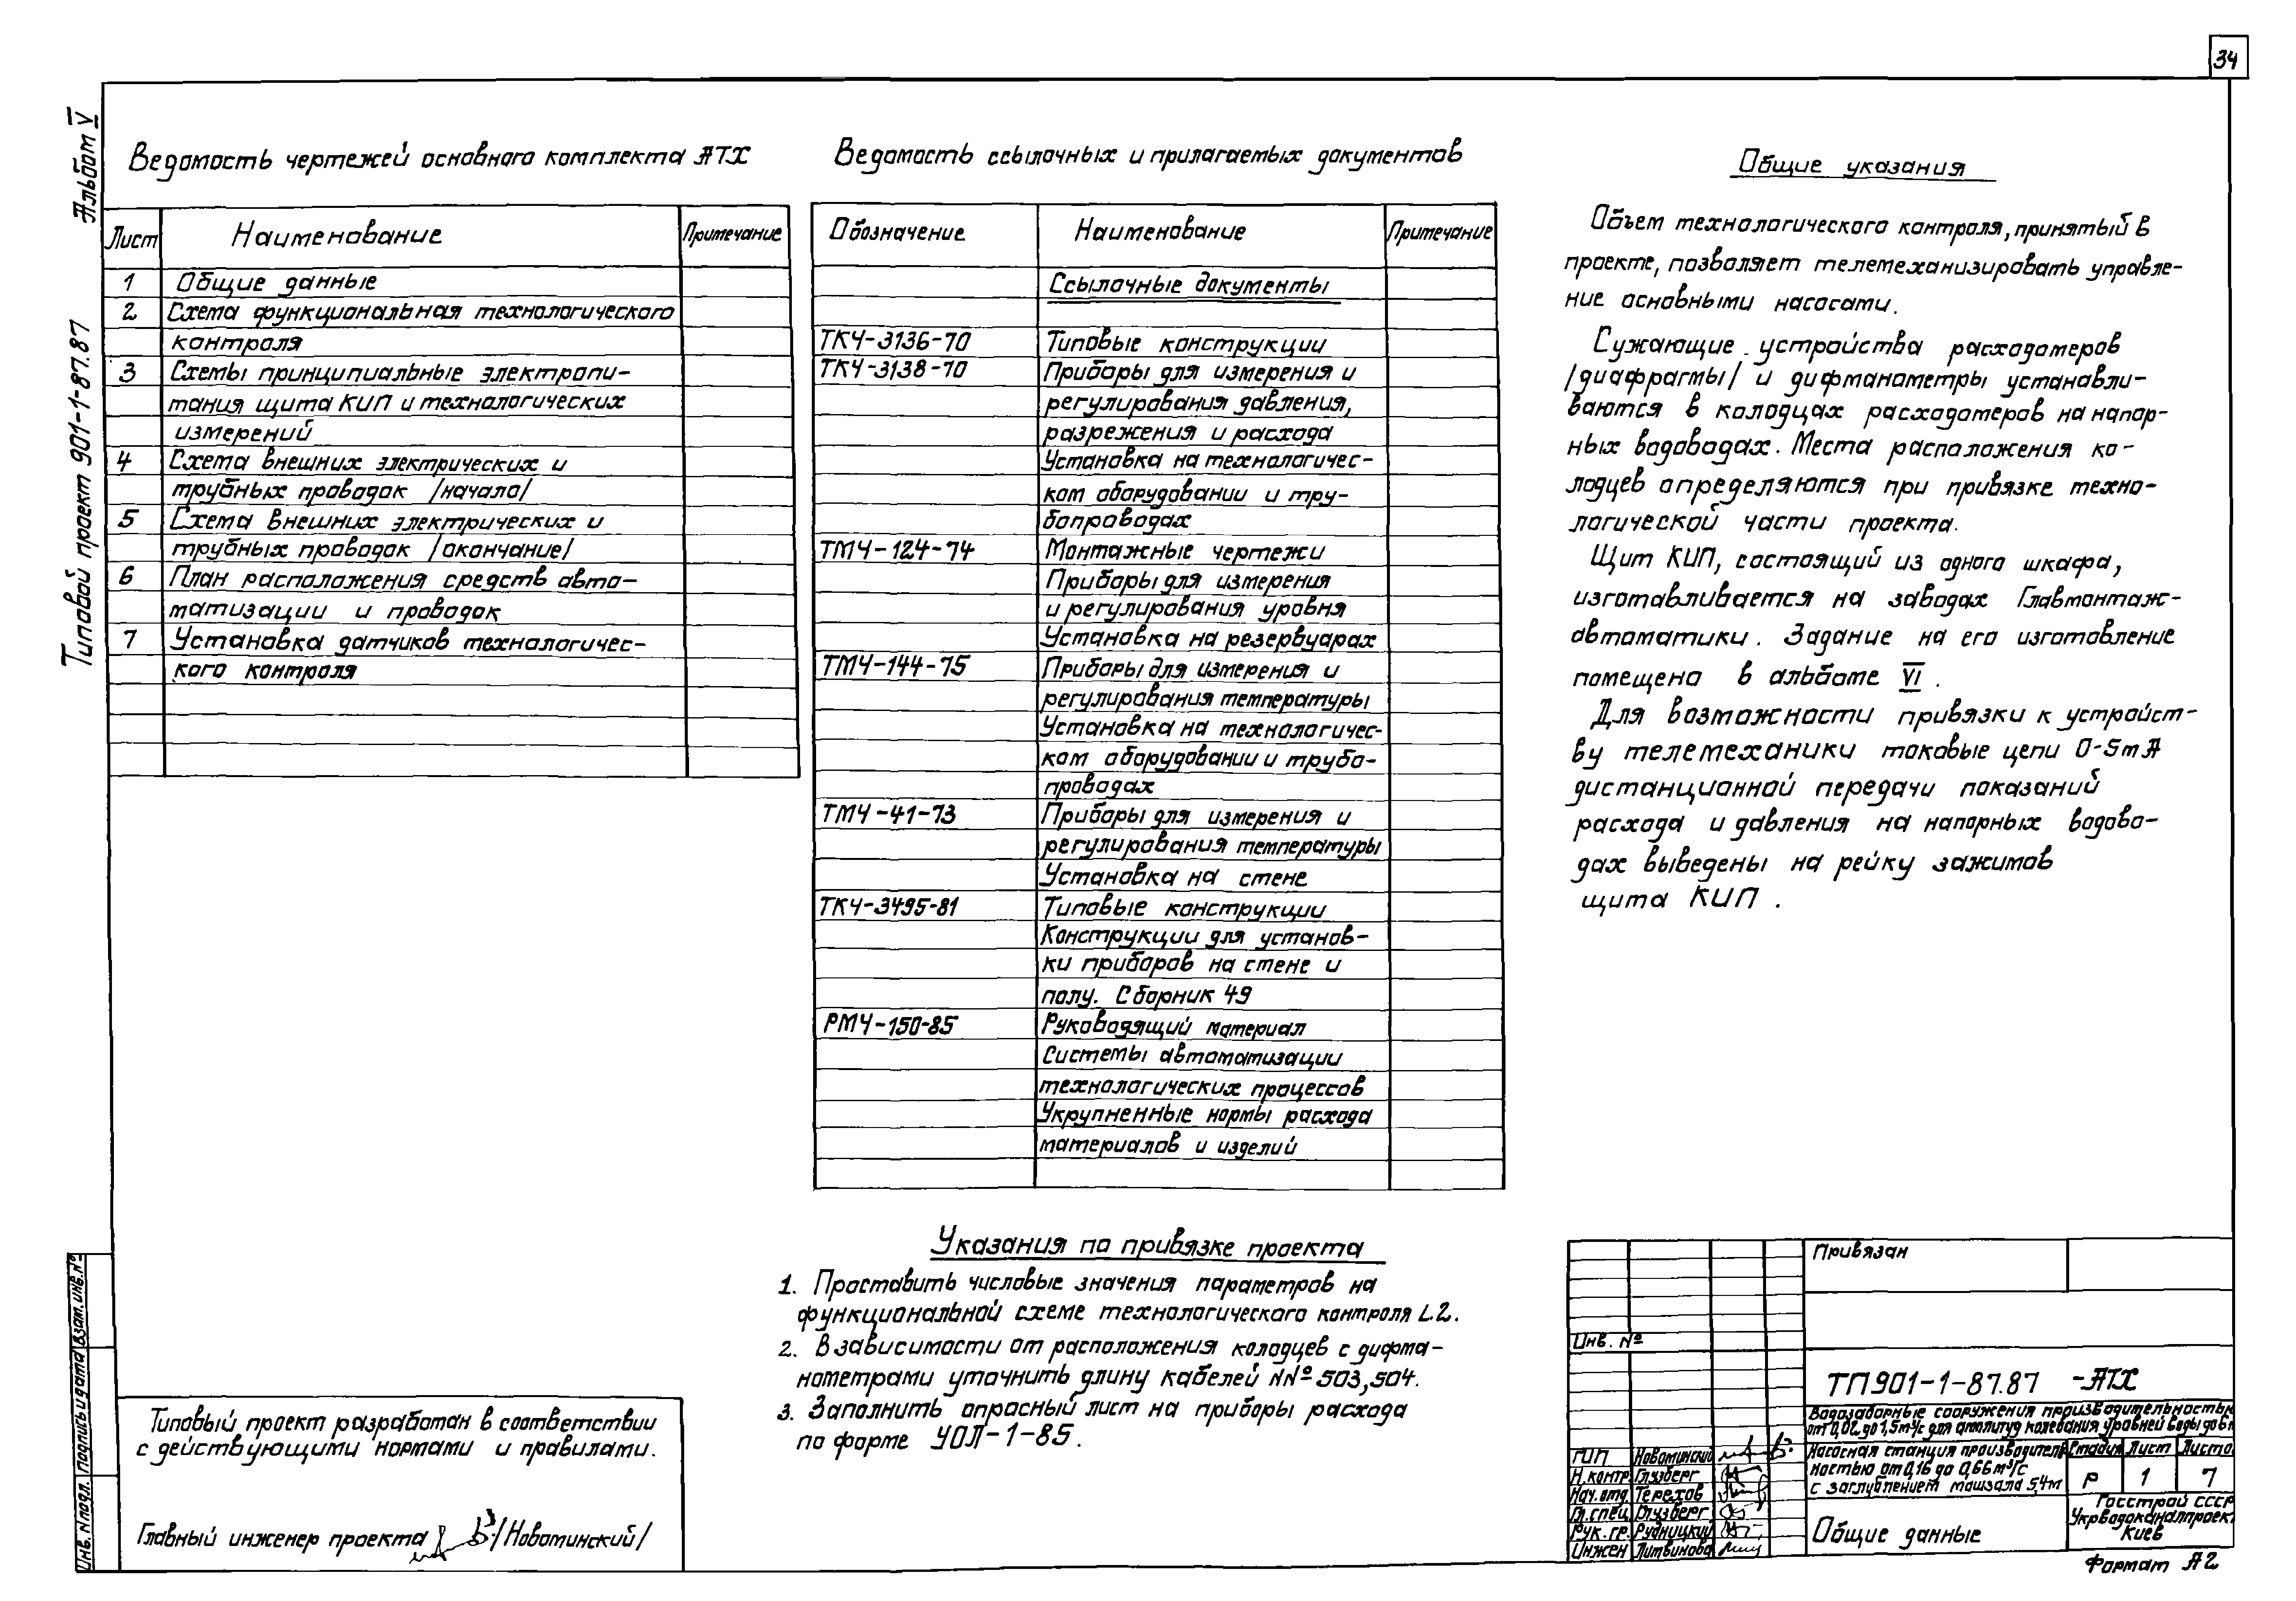 34
Альбом V
Типовой проект 901-1-87.87
Ведомость чертежей основного комплекта АТХ
Лист Наименование Примечание
1 Общие данные
2 Схема функциональная технологического
контроля
3 Схемы принципиальные электропи-
тания щита КИП и технологических
измерений
4 Схема внешних электрических и
трубных проводок /начало/
5 Схема внешних электрических и
трубных проводок /окончание/
6 План расположения средств авто-
матизации и проводок
7 Установка датчиков технологичес-
кого контроля
Ведомость ссылочных и прилагаемых документов
Обозначение Наименование Примечание
Ссылочные документы
ТК4-3136-70 Типовые конструкции
ТК4-3138-70 Приборы для измерения и
регулирования давления,
разрежения и расхода
Установка на технологичес-
ком оборудовании и тру-
бопроводах
ТМ4-124-74 Монтажные чертежи
Приборы для измерения
и регулирования уровня
Установка на резервуарах
ТМ4-144-75 Приборы для измерения и
регулирования температуры
Установка на технологичес-
ком оборудовании и трубо-
проводах
ТМ4-41-73 Приборы для измерения и
регулирования температуры
Установка на стене
ТК4-3495-81 Типовые конструкции
Конструкции для установ-
ки приборов на стене и
полу. Сборник 49
РМ4-150-85 Руководящий материал
Системы автоматизации
технологических процессов
Укрупненные нормы расхода
материалов и изделий
Общие указания
Объем технологического контроля, принятый в
проекте, позволяет телемеханизировать управле-
ние основными насосами.
Сужающие устройства расходомеров
/диафрагмы/ и дифманометры устанавли-
ваются в колодцах расходомеров на напор-
ных водоводах. Места расположения ко-
лодцев определяются при привязке техно-
логической части проекта.
Щит КИП, состоящий из одного шкафа,
изготавливается на заводах Главмонтаж-
автоматики. Задание на его изготовление
помещено в альбоме VI.
Для возможности привязки к устройст-
ву телемеханики токовые цепи 0-5мА
дистанционной передачи показаний
расхода и давления на напорных водово-
дах выведены на рейку зажимов
щита КИП.
Указания по привязке проекта
1. Проставить числовые значения параметров на
функциональной схеме технологического контроля L.2.
2. В зависимости от расположения колодцев с дифма-
нометрами уточнить длину кабелей NNº 503,504.
3. Заполнить опросный лист на приборы расхода
по форме УОЛ-1-85.
Типовый проект разработан в соответствии
с действующими нормами и правилами.
Главный инженер проекта /Новоминский/
Инв. N подл. Подпись и дата Взам. инв. Nº
Привязан
Инв. Nº
ТП 901-1-87.87 -АТХ
Водозаборные сооружения производительностью
от 0,02 до 1,5м³/с для амплитуд колебания уровней воды до 6м
Насосная станция производитель-
ностью от 0,16 до 0,66 м³/с
с заглублением машзала 5,4м
Стадия Лист Листов
Р 1 7
ГИП Новоминский
Н.контр. Глузберг
Нач.отд. Терехов
Гл.спец. Глузберг
Рук.гр. Рудницкий
Инжен Литвинова
Общие данные
Госстрой СССР
Укрводоканалпроект
Киев
Формат А2